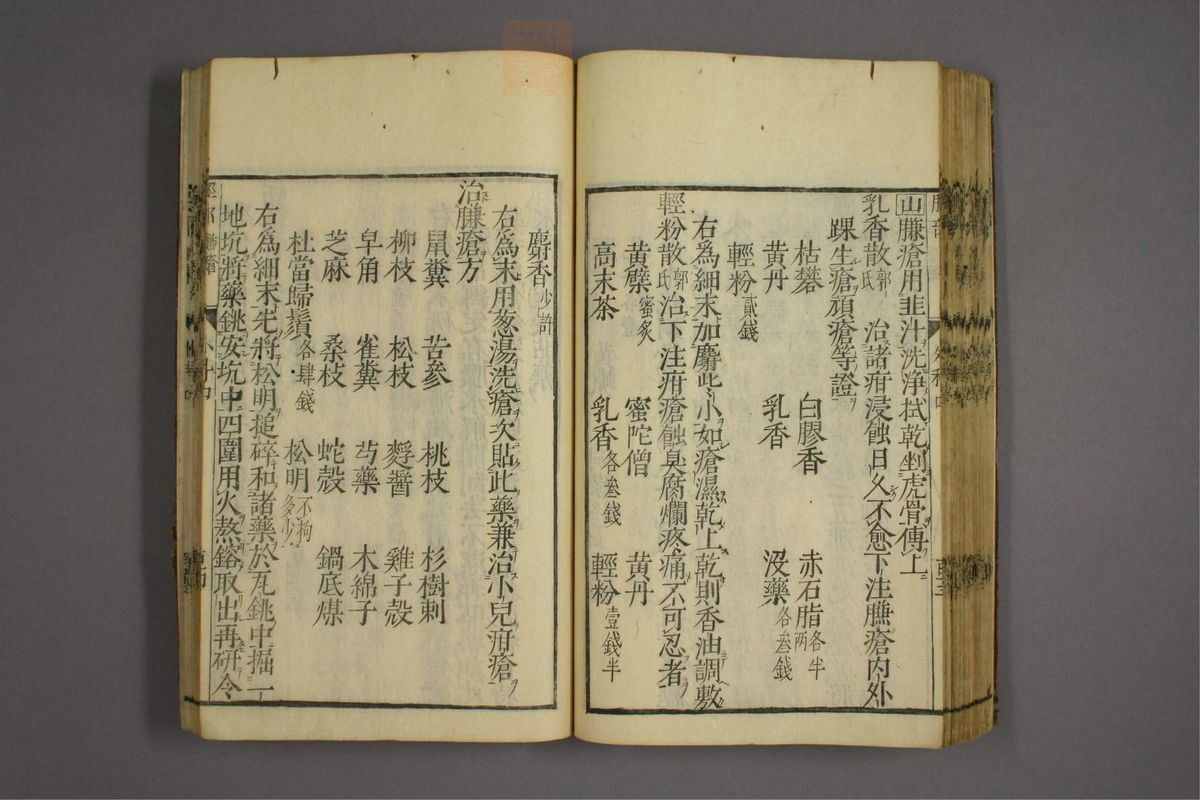 山臁瘡用韭汁洗淨拭乾剉虎骨傅上
乳香散郭氏 治諸疳浸蝕日久不愈下注臁瘡内外
踝生瘡頑瘡等證
枯礬 白膠香 赤石脂各半兩
黄丹 乳香 没藥各叁錢
輕粉貳錢
右為細末加麝此小如瘡濕乾上乾則香油調敷
輕粉散郭氏治下注疳瘡蝕臭腐爛疼痛不可忍者
黄蘖蜜炙 蜜陀僧 黄丹
高末茶 乳香各叁錢 輕粉壹錢半
麝香少許
右為末用葱湯洗瘡次貼此藥兼治小兒疳瘡
治臁瘡方
鼠糞 苦參 桃枝 杉樹刺
柳枝 松枝 麫醬 雞子殼
皁角 雀糞 芍藥 木綿子
芝麻 桑枝 蛇殼 鍋底煤
杜當歸鬚各肆錢 松明不拘多少
右為細末先將松明搥碎和諸藥於瓦銚中掘一
地坑將藥銚安坑中四圍用火熬鎔取出再研令